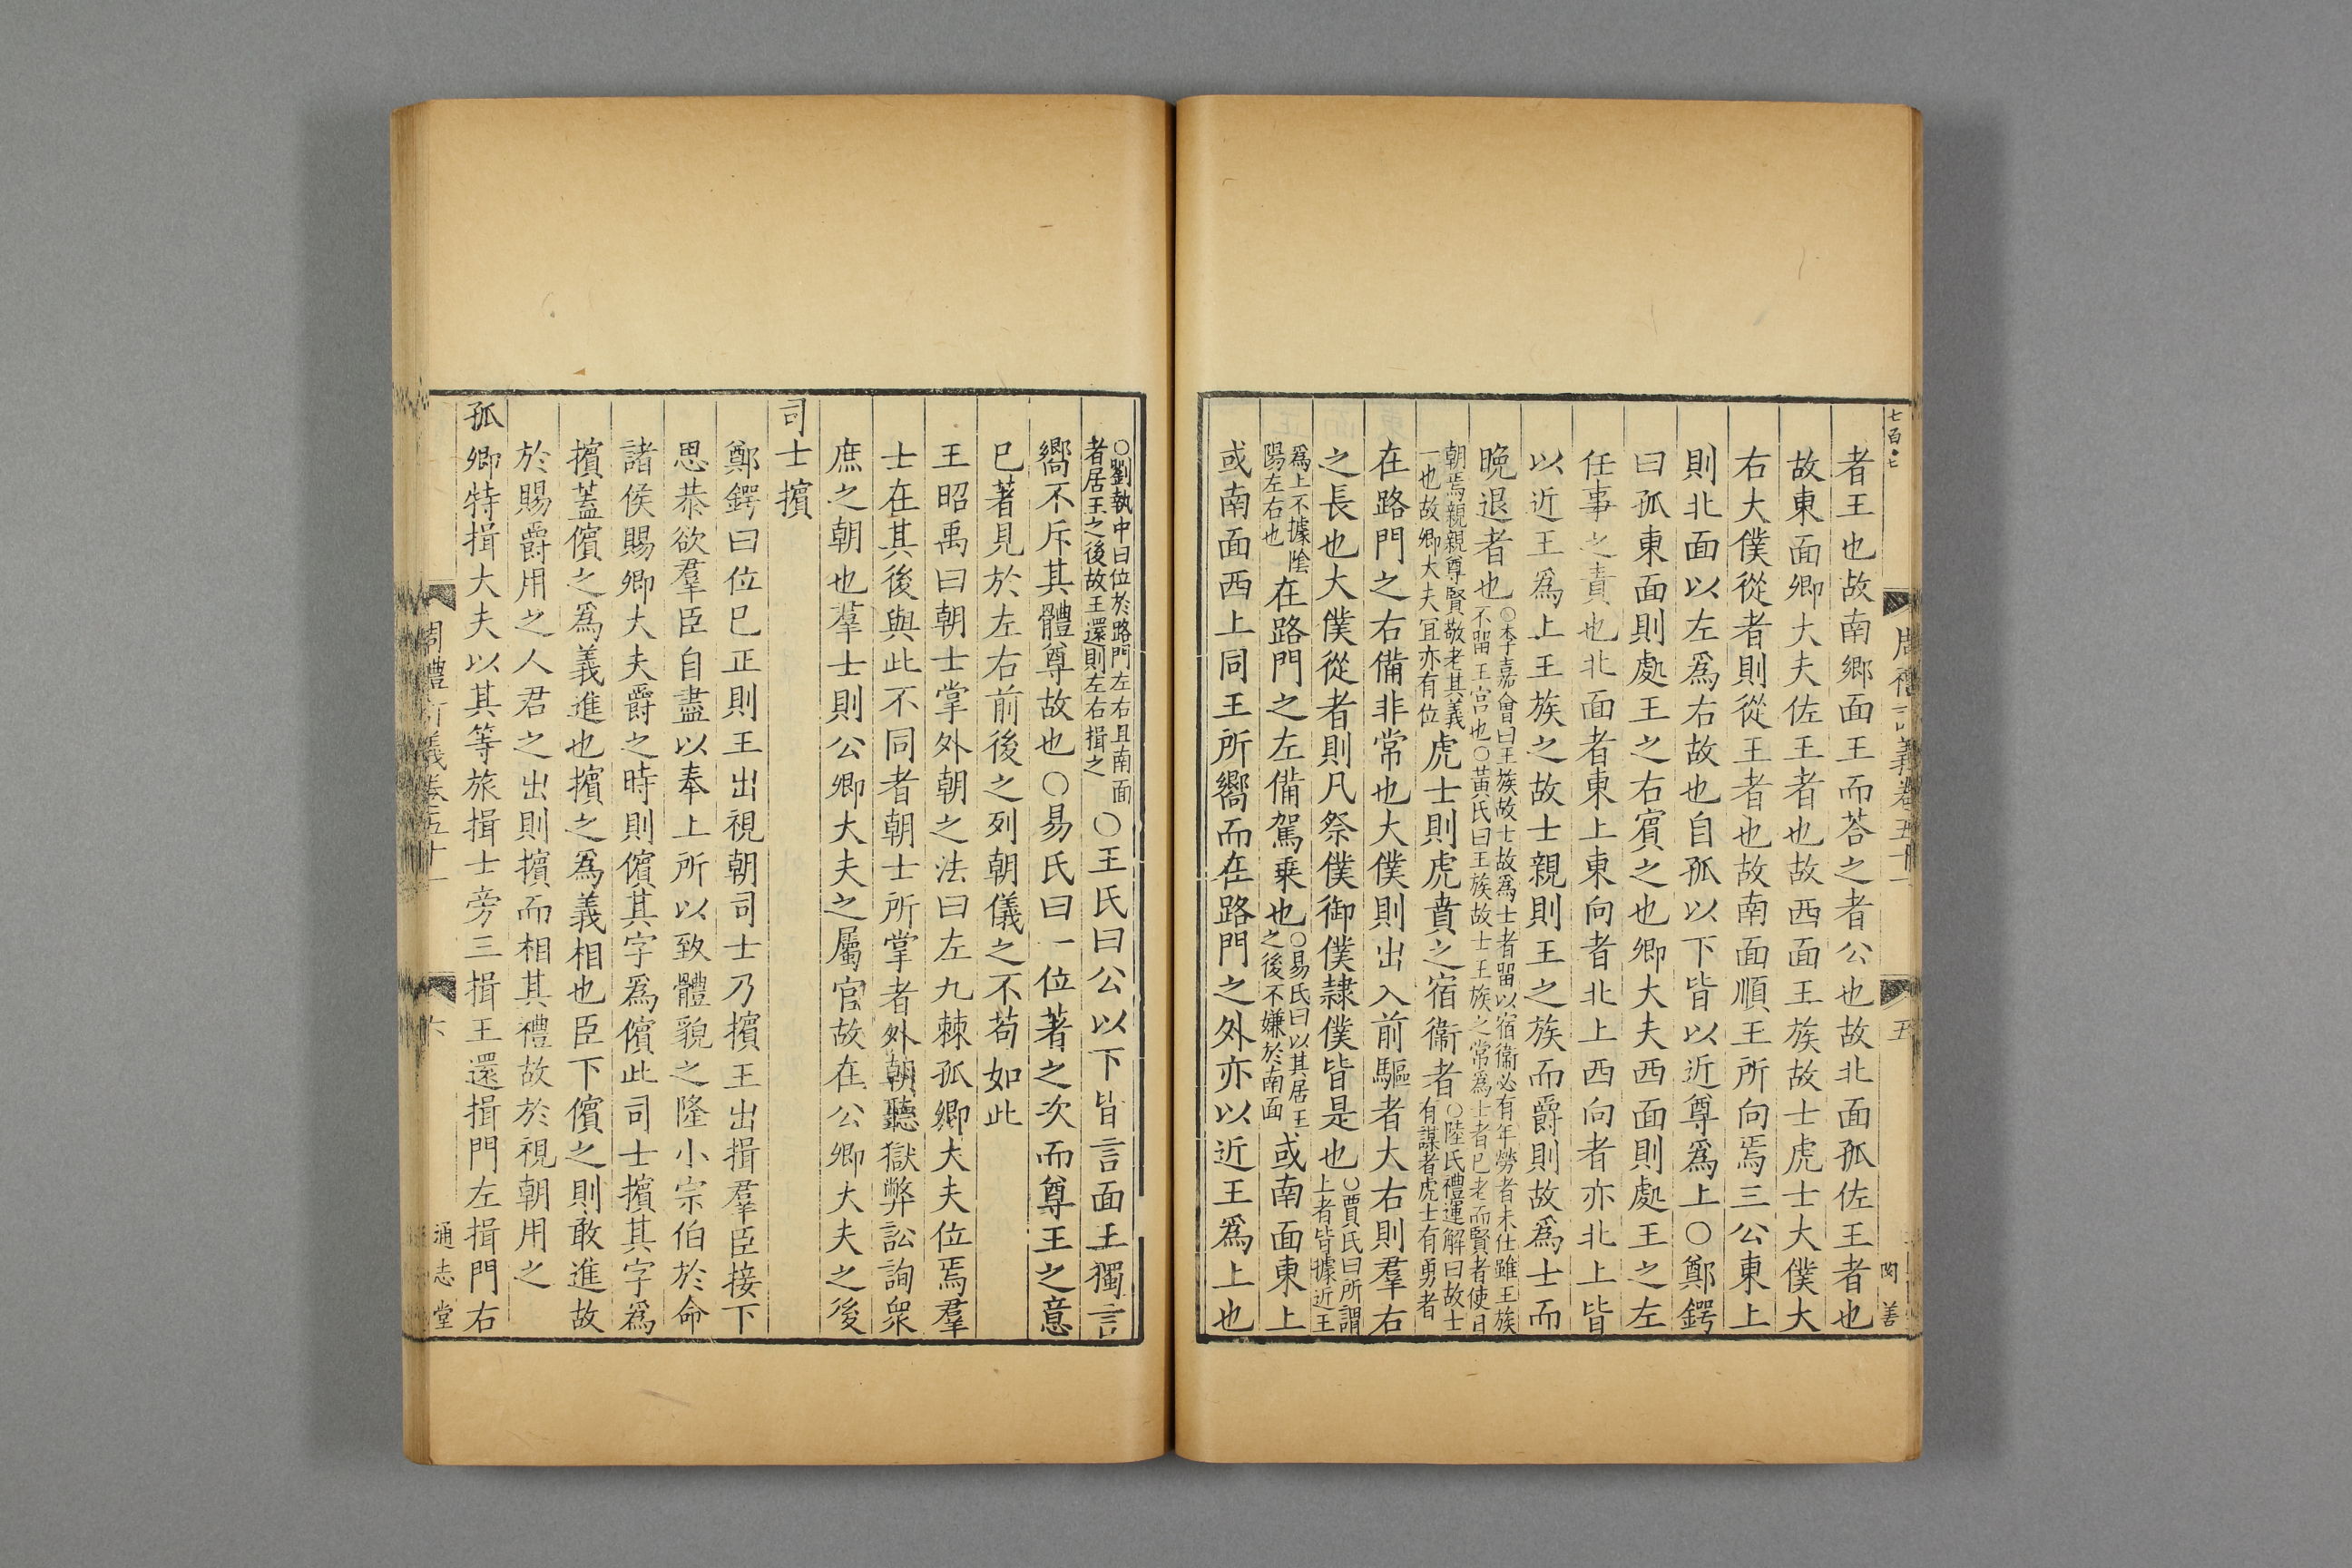 七百·七
周禮訂義卷五十一
五
閔善
者王也故南鄉面王而荅之者公也故北面孤佐王者也
故東面卿大夫佐王者也故西面王族故士虎士大僕大
右大僕從者則從王者也故南面順王所向焉三公東上
則北面以左爲右故也自孤以下皆以近尊爲上○鄭鍔
曰孤東面則處王之右賓之也卿大夫西面則處王之左
任事之責也北面者東上東向者北上西向者亦北上皆
以近王爲上王族之故士親則王之族而爵則故爲士而
晩退者也○李嘉會曰王族故士故爲士者畱以宿衞必有年勞者未仕雖王族
不畱王宫也○黃氏曰王族故士王族之常爲上者已老而賢者使日
朝焉親親尊賢敬老其義
一也故卿大夫冝亦有位虎士則虎賁之宿衞者○陸氏禮運解曰故士
有謀者虎士有勇者
在路門之右備非常也大僕則出入前驅者大右則羣右
之長也大僕從者則凡祭僕御僕隷僕皆是也○賈氏曰所謂
上者皆據近王
爲上不據隂
陽左右也在路門之左備駕乗也○易氏曰以其居王
之後不嫌於南面或南面東上
或南面西上同王所嚮而在路門之外亦以近王爲上也
○劉執中曰位於路門左右且南面
者居王之後故王還則左右揖之○王氏曰公以下皆言面王獨言
嚮不斥其體尊故也○易氏曰一位著之次而尊王之意
已著見於左右前後之列朝儀之不苟如此
王昭禹曰朝士掌外朝之法曰左九棘孤卿大夫位焉羣
士在其後與此不同者朝士所掌者外朝聽獄弊訟詢衆
庶之朝也羣士則公卿大夫之屬官故在公卿大夫之後
司士擯
鄭鍔曰位已正則王出視朝司士乃擯王出揖羣臣接下
思恭欲羣臣自盡以奉上所以致體貌之隆小宗伯於命
諸侯賜卿大夫爵之時則儐其字爲儐此司士擯其字爲
擯蓋儐之爲義進也擯之爲義相也臣下儐之則敢進故
於賜爵用之人君之出則擯而相其禮故於視朝用之
孤卿特揖大夫以其等旅揖士旁三揖王還揖門左揖門右
周禮訂義卷五十一
六
通志堂